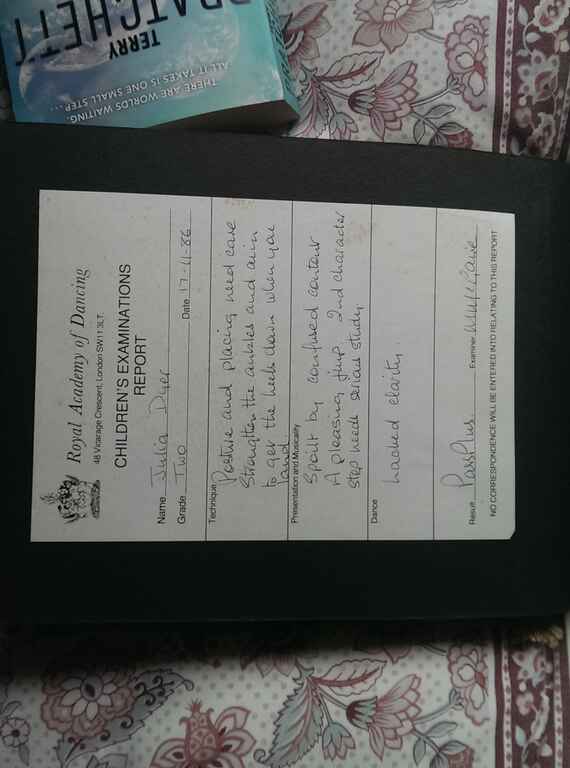 PRATCHETT
TERRY
ALL IT TAKES IS ONE SMALL STEP...
THERE ARE WORLDS WAITING.
Royal Academy of Dancing
48 Vicarage Crescent, London SW11 3LT.
CHILDREN'S EXAMINATIONS
REPORT
Name Julia Dyer
Grade Two Date 17-4-86
Technique Posture and placing need care
Strengthen the ankles and aim
to get the heels down when you
land
Presentation and Musicality
Spoilt by confused content
A pleasing jump 2nd character
step needs serious study
Dance
Lacked clarity.
Result Pass Plus. Examiner
NO CORRESPONDENCE WILL BE ENTERED INTO RELATING TO THIS REPORT